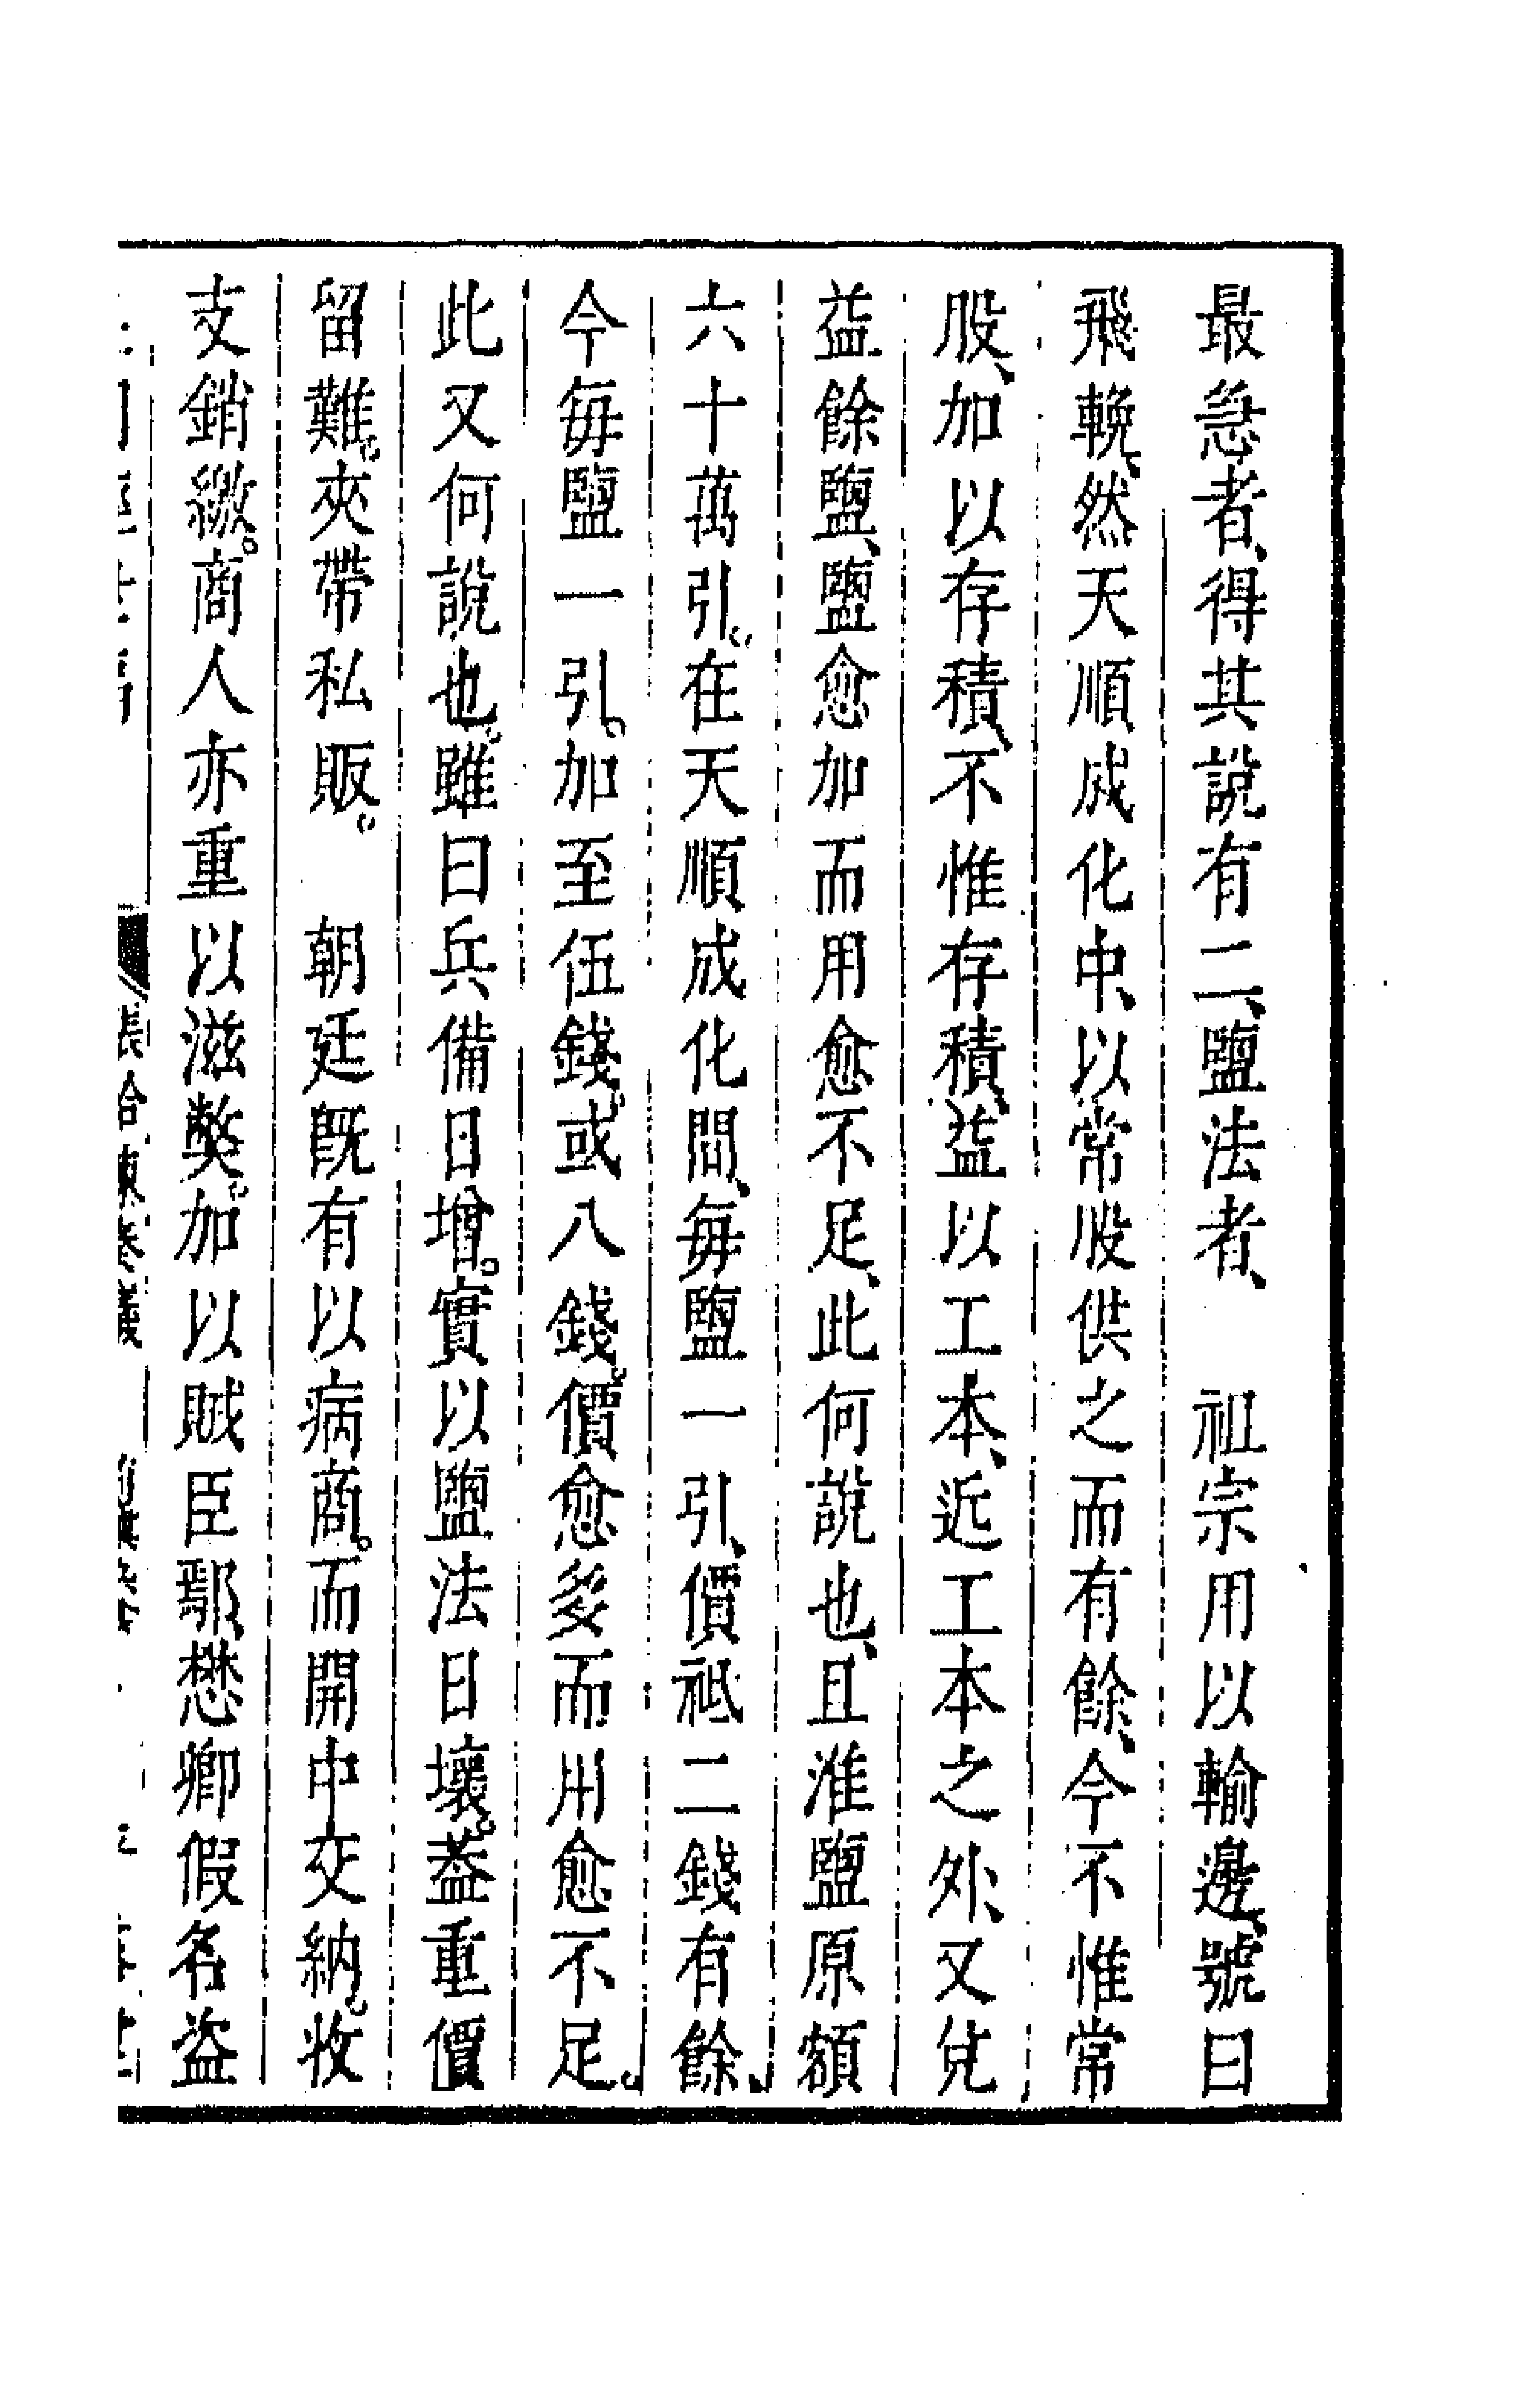 最急者、得其說有二、鹽法者、　祖宗用以輸邊、號曰
飛輓、然天順成化中、以常股供之而有餘、今不惟常
股、加以存積、不惟存積、益以工本、近工本之外、又兌
益餘鹽、鹽愈加而用愈不足、此何說也、且淮鹽原額
六十萬引。在天順成化間、每鹽一引、價祗二錢有餘、
今每鹽一引。加至伍錢。或八錢。價愈多而用愈不足。
此又何說也。雖曰兵備日增。實以鹽法日壞。葢重價
留難。夾帶私販。　朝廷旣有以病商。而開中交納。收
支銷繳。商人亦重以滋獘。加以賊臣鄢懋卿假名盜
張給諫奏議